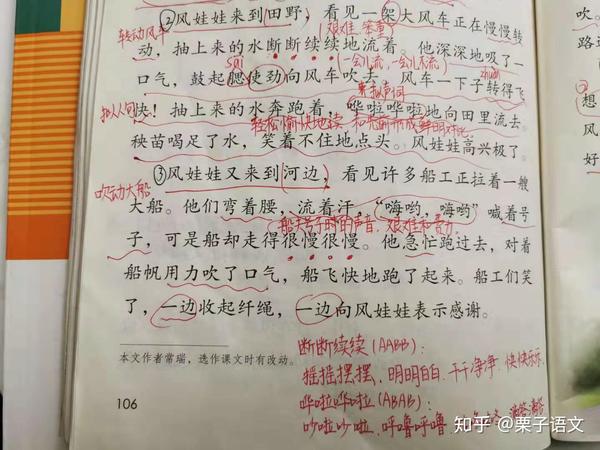 ②风娃娃来到田野，看见一架大风车正在慢慢转
转动风车
艰难、笨重
动，抽上来的水断断续续地流着。他深深地吸了一
sāi
一会儿流，一会儿不流
口气，鼓起腮使劲向风车吹去。风车一下子转得飞
zhuàn
拟人句
快！抽上来的水奔跑着，哗啦哗啦地向田里流去。
秧苗喝足了水，笑着不住地点头。风娃娃高兴极了。
③风娃娃又来到河边，看见许多船工正拉着一艘
吹动大船
大船。他们弯着腰，流着汗，“嗨哟，嗨哟”喊着号
子，可是船却走得很慢很慢。他急忙跑过去，对着
船帆用力吹了口气，船飞快地跑了起来。船工们笑
了，一边收起纤绳，一边向风娃娃表示感谢。
本文作者常瑞，选作课文时有改动。
106
断断续续(AABB)：
摇摇摆摆、明明白白、干干净净、快快乐乐
哗啦哗啦(ABAB)：
吵啦吵啦、呼噜呼噜
知乎 @栗子语文
吹。
路边
②想
风
好